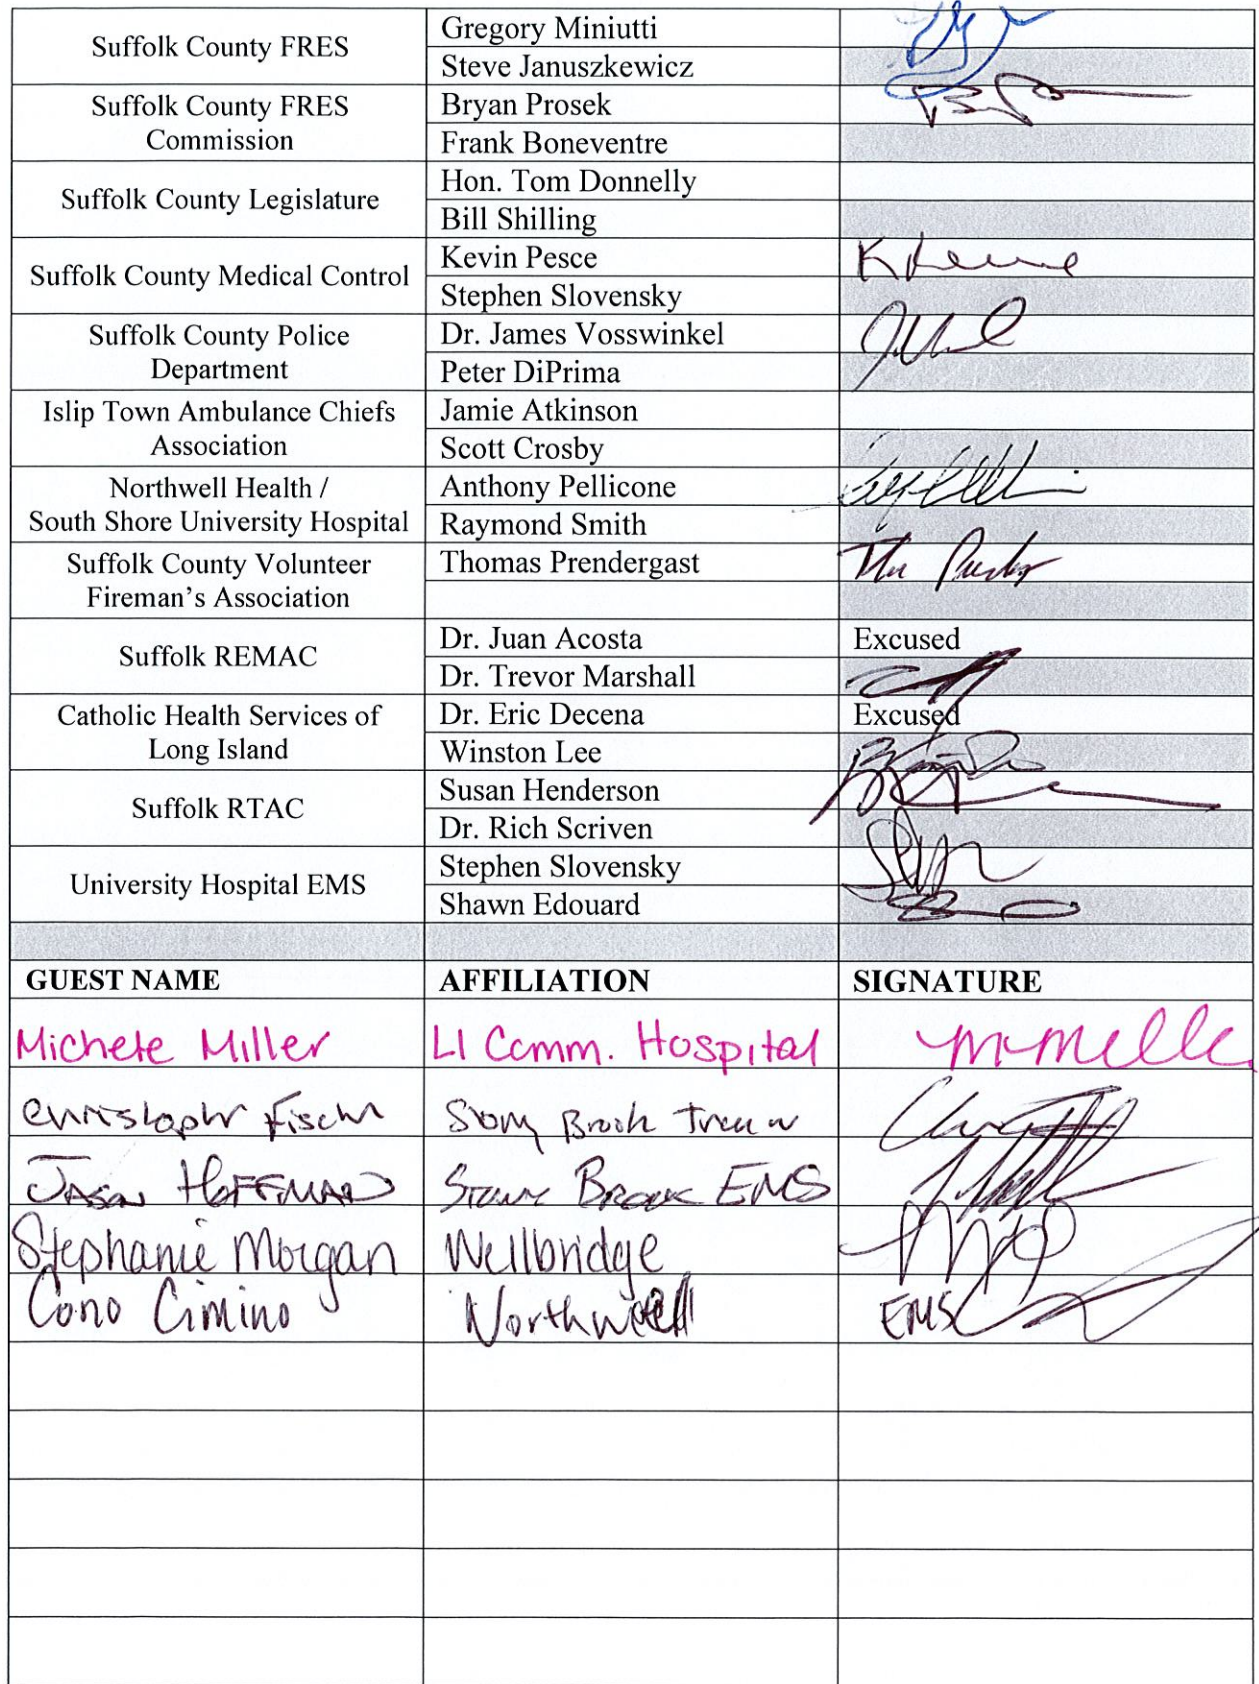 Suffolk County FRES
Gregory Miniutti
Steve Januszkewicz
Suffolk County FRES
Commission
Bryan Prosek
Frank Boneventre
Suffolk County Legislature
Hon. Tom Donnelly
Bill Shilling
Suffolk County Medical Control
Kevin Pesce
Stephen Slovensky
Suffolk County Police
Department
Dr. James Vosswinkel
Peter DiPrima
Islip Town Ambulance Chiefs
Association
Jamie Atkinson
Scott Crosby
Northwell Health /
South Shore University Hospital
Anthony Pellicone
Raymond Smith
Suffolk County Volunteer
Fireman's Association
Thomas Prendergast
Suffolk REMAC
Dr. Juan Acosta Excused
Dr. Trevor Marshall
Catholic Health Services of
Long Island
Dr. Eric Decena Excused
Winston Lee
Suffolk RTAC
Susan Henderson
Dr. Rich Scriven
University Hospital EMS
Stephen Slovensky
Shawn Edouard
GUEST NAME AFFILIATION SIGNATURE
Michele Miller LI Comm. Hospital
Stony Brook
Jason Hoffman Stony Brook EMS
Stephanie Morgan Wellbridge
Cono Cimino Northwell EMS